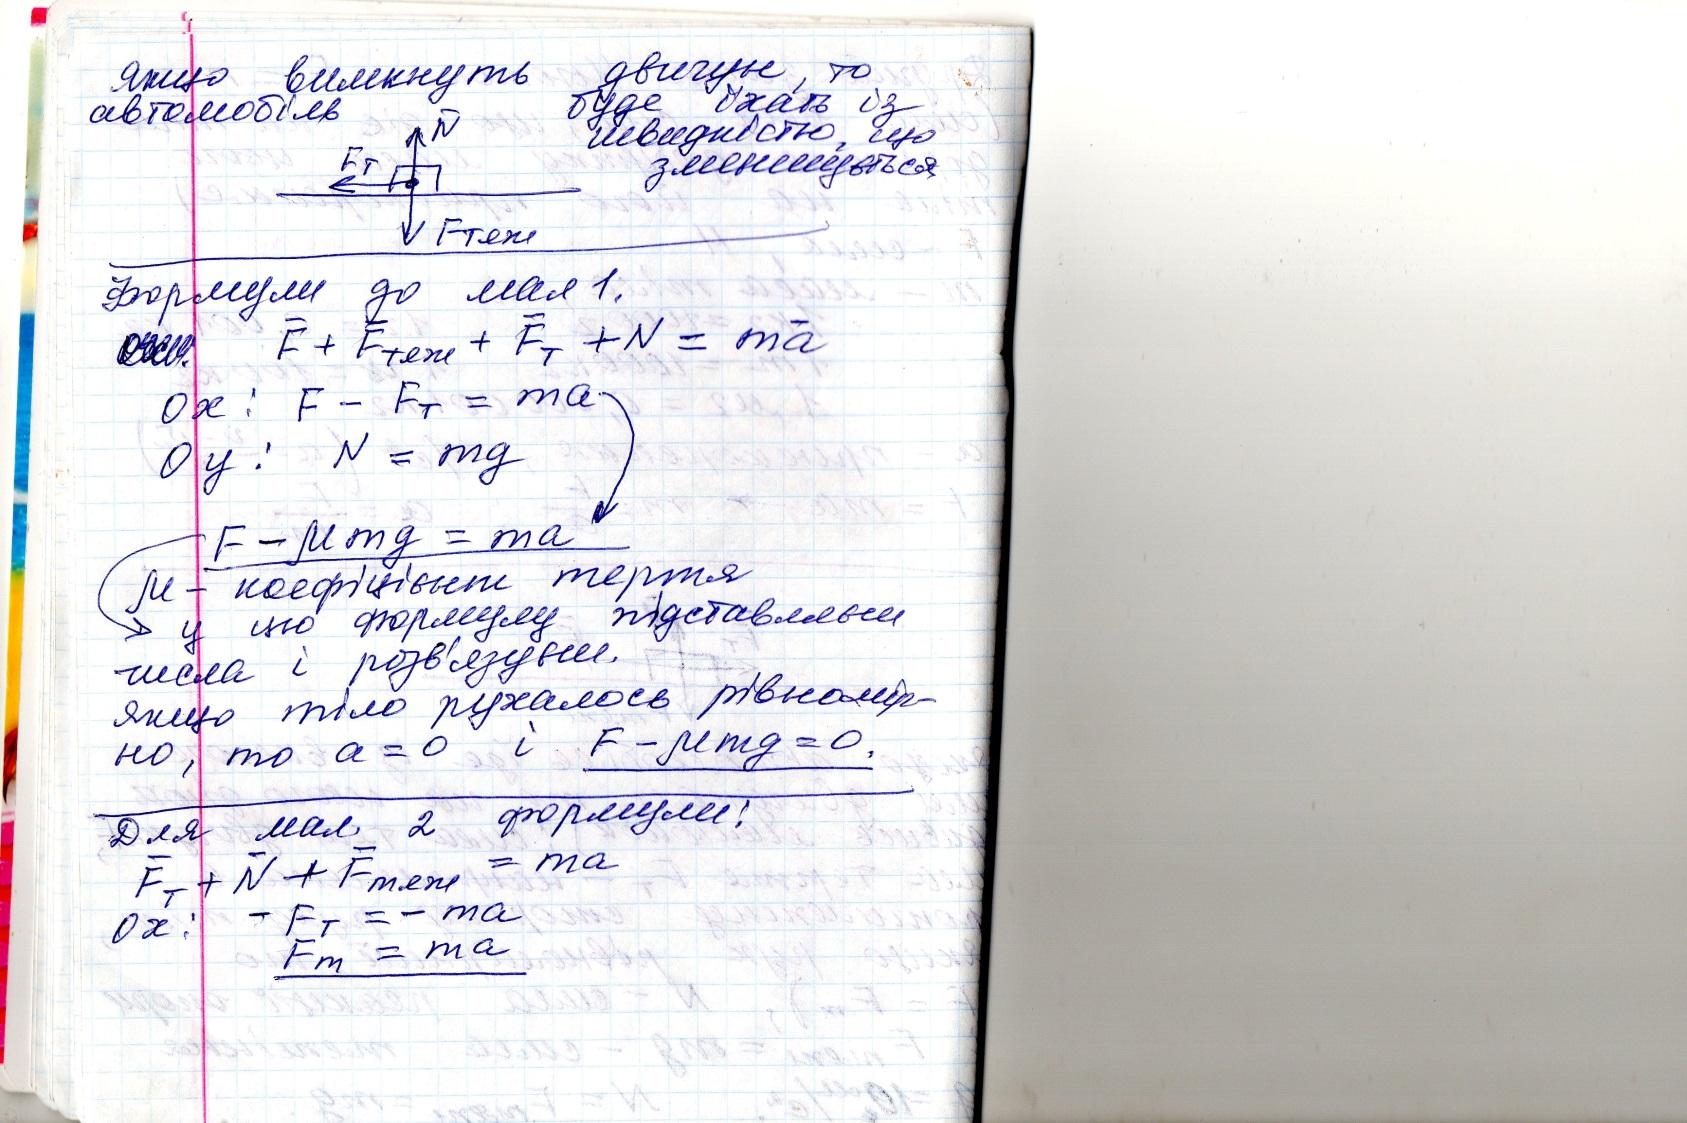 якщо вимкнуть двигун, то
автомобіль буде їхать із
швидкістю, що
зменшується
N̄
Fт
Fтяж
Формули до мал 1.
F̄ + F̄тяж + F̄т + N = mā
Ox: F - Fт = ma
Oy: N = mg
F - μmg = ma
μ - коефіцієнт тертя
у цю формулу підставляєш
числа і розв'язуєш.
якщо тіло рухалось рівномір-
но, то a = 0 і F - μmg = 0.
Для мал. 2 формули:
F̄т + N̄ + F̄тяж = ma
Ox: - Fт = - ma
Fт = ma